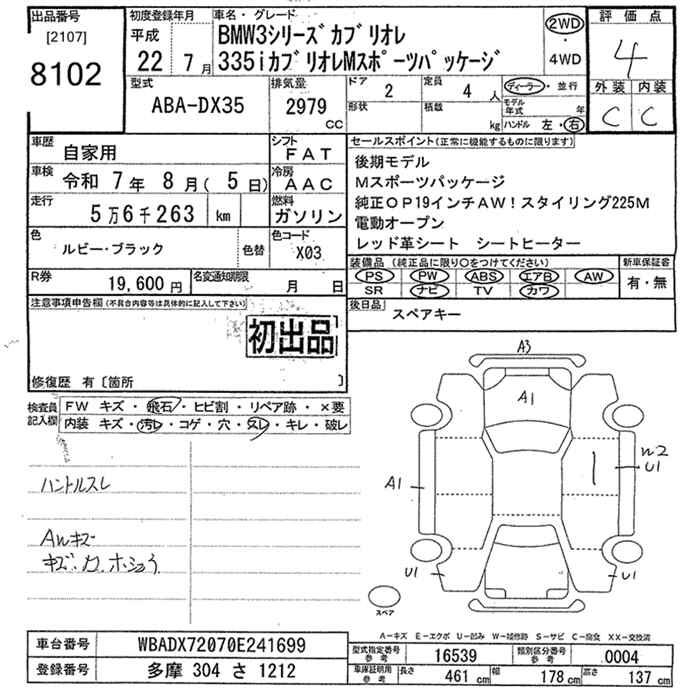 出品番号 初度登録年月 車名・グレード 評価点
[2107] 平成 BMW3シリーズカブリオレ 2WD
8102 22年 7月 335iカブリオレMスポーツパッケージ 4WD 4
型式 排気量 ドア 定員 ディーラー・並行 外装 内装
ABA-DX35 2979 CC 2 4人 モデル年式 年 C C
形状 積載 kg ハンドル 左・右
車歴 自家用 シフト FAT セールスポイント(正常に機能するものに限ります)
車検 令和 7年 8月( 5日) 冷房 AAC 後期モデル
Mスポーツパッケージ
走行 5万6千263 km 燃料 ガソリン 純正OP19インチAW!スタイリング225M
電動オープン
色 ルビー・ブラック 色替 色コード X03 レッド革シート シートヒーター
装備品(純正品に限り○をつけてください) 新車保証書
R券 19,600円 名変通知期限 月 日 PS PW ABS エアB AW 有・無
SR ナビ TV カワ
注意事項申告欄(不具合内容等は具体的に記入して下さい) 後日品 スペアキー
初出品
修復歴 有〔箇所 〕
検査員記入欄 FW キズ・飛石・ヒビ割・リペア跡・×要
内装 キズ・汚レ・コゲ・穴・スレ・キレ・破レ
A3
A1
W2
U1
A1
ハンドルスレ
AWキズ
U1 U1
スペア
A-キズ E-エクボ U-凹み W-補修跡 S-サビ C-腐食 XX-交換済
車台番号 WBADX72070E241699 型式指定番号 参考 16539 類別区分番号 参考 0004
登録番号 多摩 304 さ 1212 車体証明用 参考 長さ 461 cm 幅 178 cm 高さ 137 cm